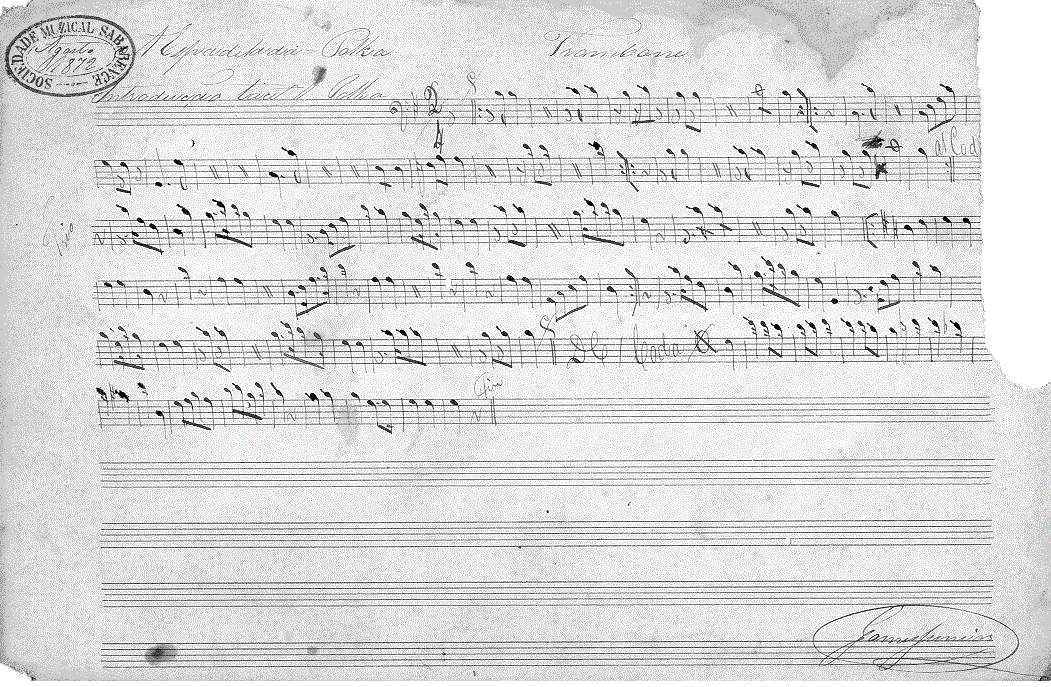 SOCIEDADE MUZICAL SABARENCE
Agosto
1872
Polka Trombone
Introducção tacet Polka
al Coda
Trio
DC Coda
Fim